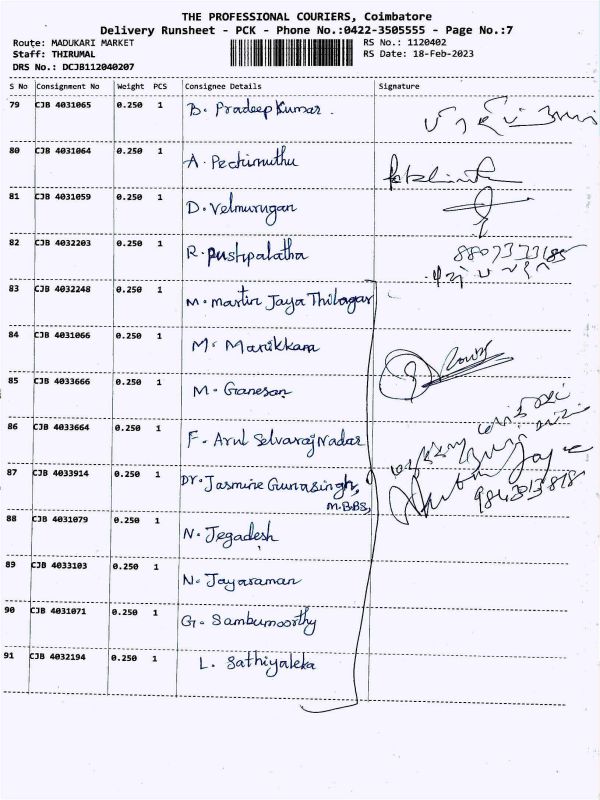 THE PROFESSIONAL COURIERS, Coimbatore
Delivery Runsheet - PCK - Phone No.:0422-3505555 - Page No.:7
Route: MADUKARI MARKET RS No.: 1120402
Staff: THIRUMAL RS Date: 18-Feb-2023
DRS No.: DCJB112040207
S No Consignment No Weight PCS Consignee Details Signature
79 CJB 4031065 0.250 1 B. Pradeep Kumar.
80 CJB 4031064 0.250 1 A. Pechimuthu
81 CJB 4031059 0.250 1 D. Velmurugan
82 CJB 4032203 0.250 1 R. pushpalatha
83 CJB 4032248 0.250 1 M. martin Jaya Thilagar
84 CJB 4031066 0.250 1 M. Manikkam
85 CJB 4033666 0.250 1 M. Ganesan
86 CJB 4033664 0.250 1 F. Arul Selvaraj Nadar
87 CJB 4033914 0.250 1 Dr. Jasmine Gunasingh,
M.B.BS,
88 CJB 4031079 0.250 1 N. Jegadesh
89 CJB 4033103 0.250 1 N. Jayaraman
90 CJB 4031071 0.250 1 G. Sambumoorthy
91 CJB 4032194 0.250 1 L. Sathiyaleka